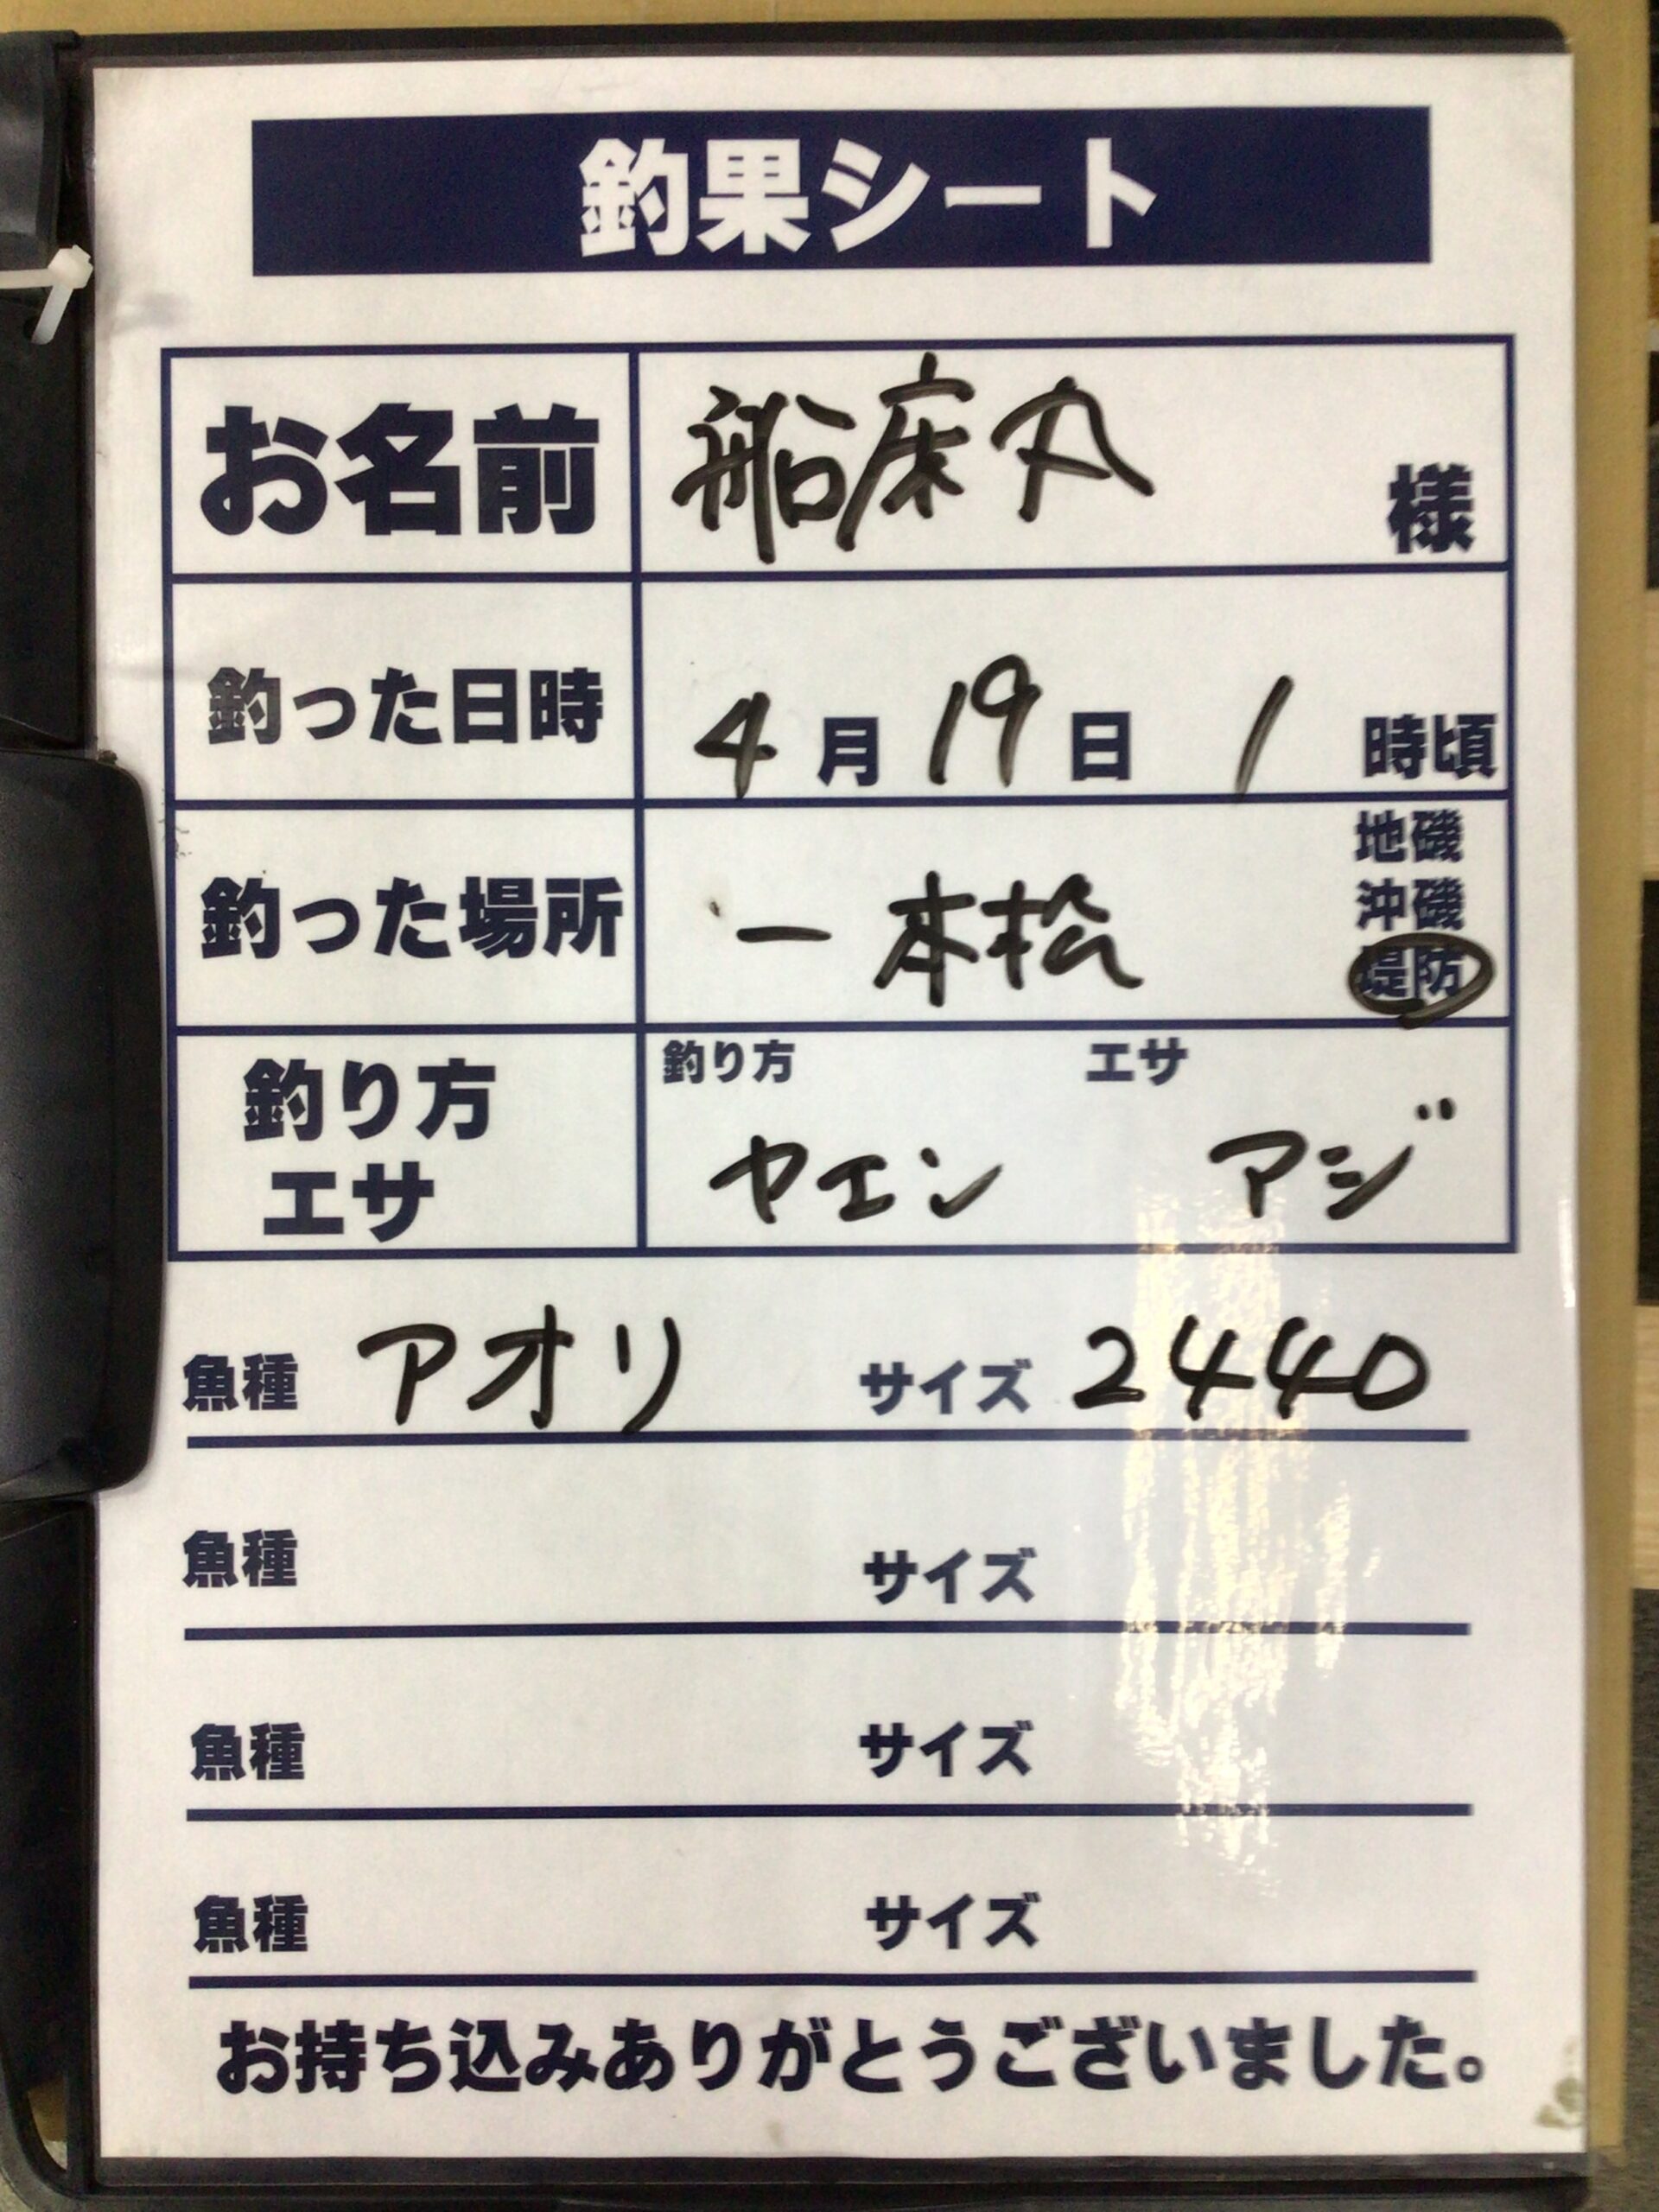 釣果シート
お名前 船床丸 様
釣った日時 4月19日 1時頃
釣った場所 一本松 地磯
沖磯
堤防
釣り方 エサ
釣り方
エサ
ヤエン アジ
魚種 アオリ サイズ 2440
魚種 サイズ
魚種 サイズ
魚種 サイズ
お持ち込みありがとうございました。